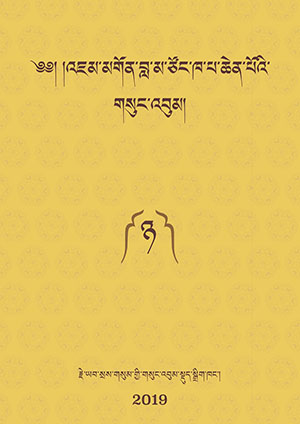 ༄༅། །འཇམ་མགོན་བླ་མ་ཙོང་ཁ་པ་ཆེན་པོའི་
གསུང་འབུམ།
ཉ
རྗེ་ཡབ་སྲས་གསུམ་གྱི་གསུང་འབུམ་སྡུད་སྒྲིག་ཁང་།
2019